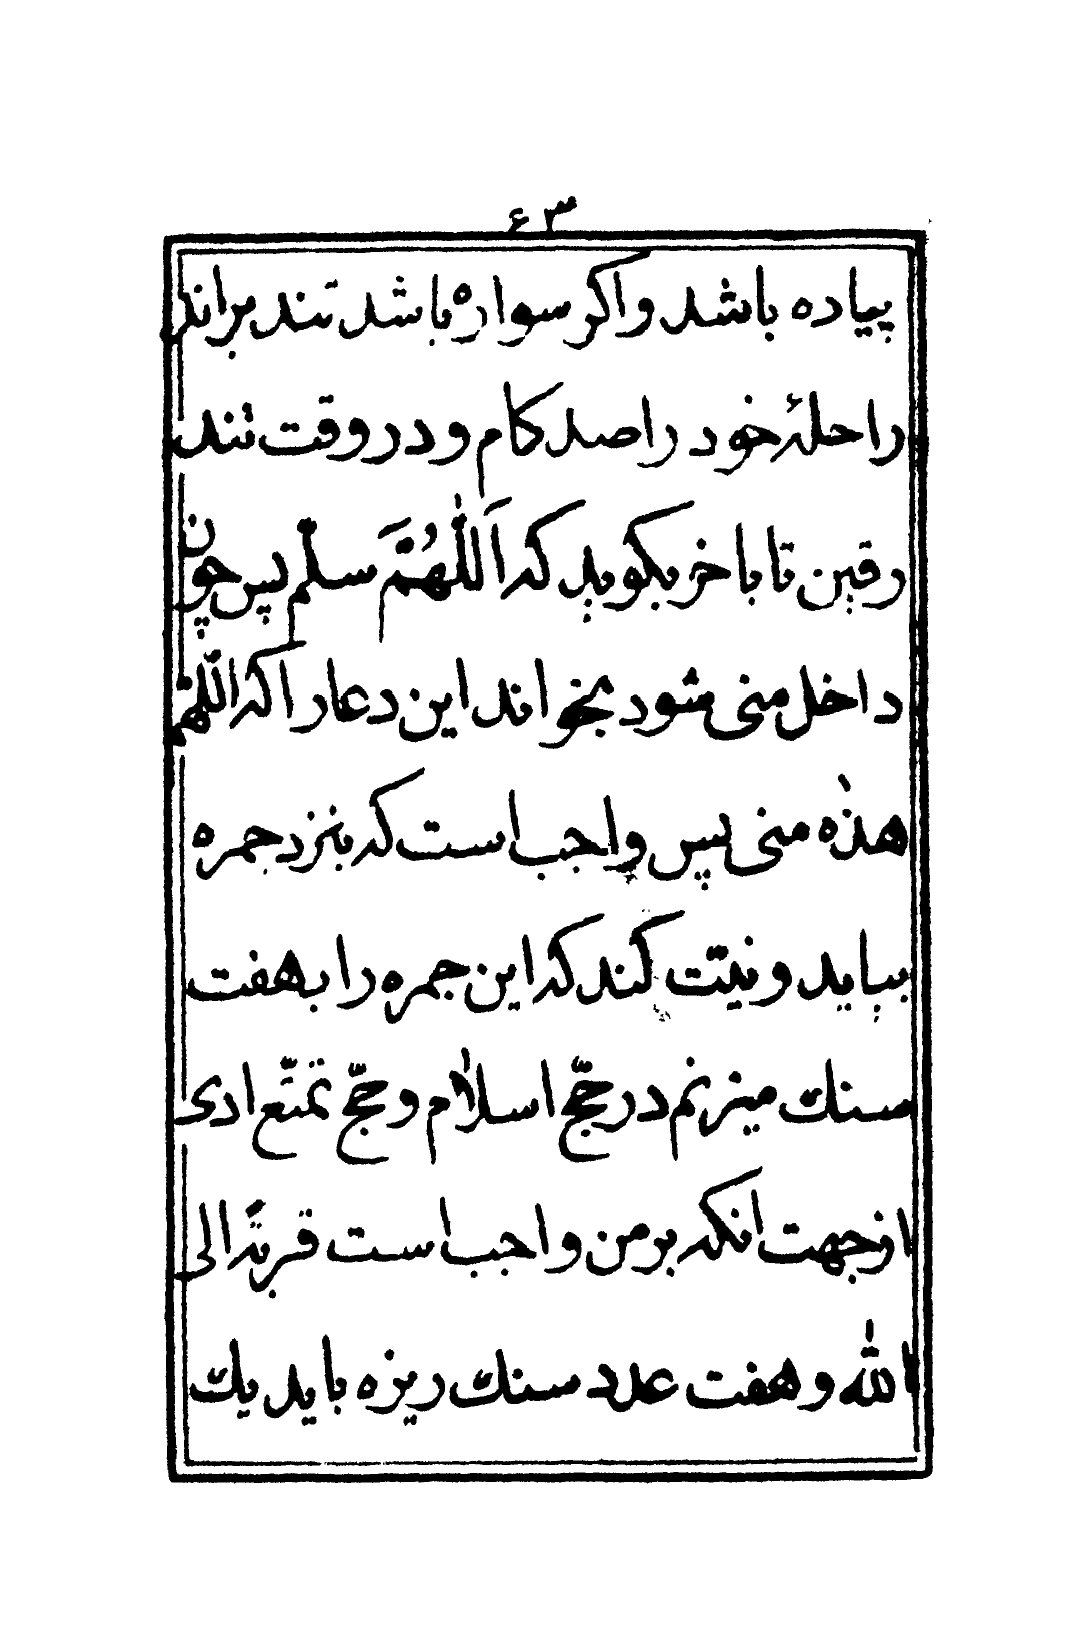 ۶۳
پیاده باشد و اکر سواره باشد تند براند
راحلهٔ خود را صد کام و در وقت تند
رفتن تا باخر بکوید که اَللّٰهُمَّ سلّم پس چون
داخل منی شود بخواند این دعا را که اللّهمّ
هذٰه منی پس واجب است که بنزد جمره
بیاید و نیّت کند که این جمره را بهفت
سنك میزنم در حجّ اسلام و حجّ تمتّع ادی
از جهت انکه بر من واجب است قربةً الی
اللّٰه و هفت عدد سنك ریزه باید یك